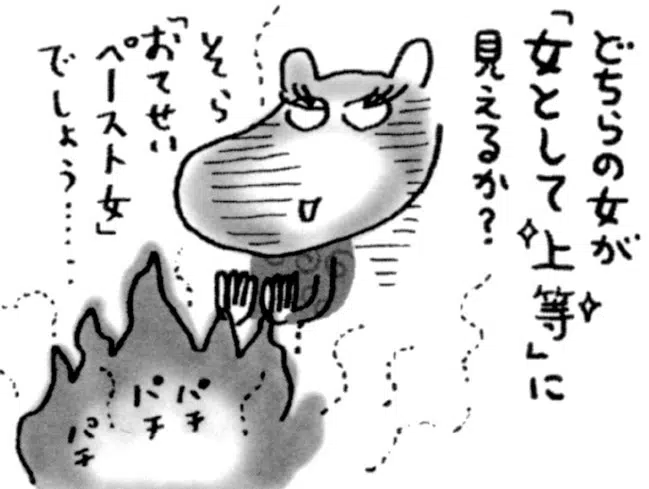 どちらの女が
「女として上等」に
見えるか?
そら
「おてせい
ペースト女」
でしょう……
パチ
パチ
パチ